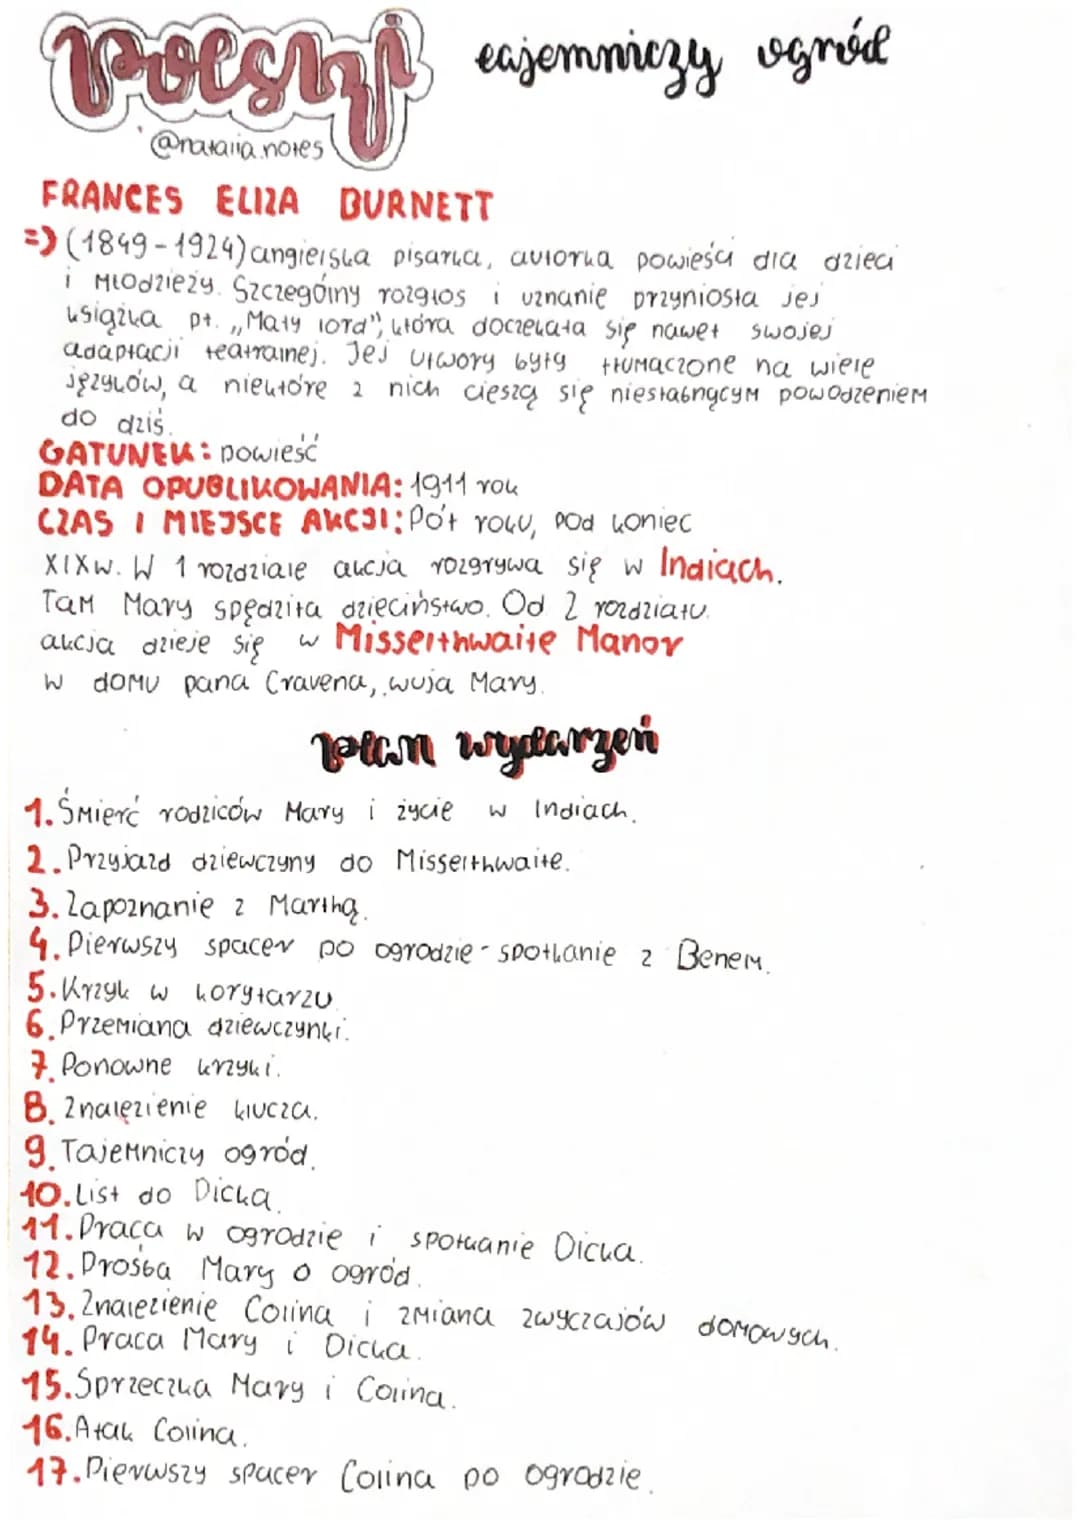 polski tajemniczy ogród
@natalia.notes
FRANCES ELIZA BURNETT
=> (1849-1924) angielska pisarka, autorka powieści dla dzieci
i młodzieży. Szczególny rozgłos i uznanie przyniosła jej
książka pt. „Mały lord", która doczekała się nawet swojej
adaptacji teatralnej. Jej utwory były tłumaczone na wiele
języków, a niektóre z nich cieszą się niesłabnącym powodzeniem
do dziś.
GATUNEK: powieść
DATA OPUBLIKOWANIA: 1911 rok
CZAS I MIEJSCE AKCJI: Pół roku, pod koniec
XIXw. W 1 rozdziale akcja rozgrywa się w Indiach.
Tam Mary spędziła dzieciństwo. Od 2 rozdziału
akcja dzieje się w Misselthwaite Manor
w domu pana Cravena, wuja Mary.
Plan wydarzeń
1. Śmierć rodziców Mary i życie w Indiach.
2. Przyjazd dziewczyny do Misselthwaite.
3. Zapoznanie z Marthą.
4. Pierwszy spacer po ogrodzie - spotkanie z Benem.
5. Krzyk w korytarzu.
6. Przemiana dziewczynki.
7. Ponowne krzyki.
8. Znalezienie klucza.
9. Tajemniczy ogród.
10. List do Dicka.
11. Praca w ogrodzie i spotkanie Dicka.
12. Prośba Mary o ogród.
13. Znalezienie Colina i zmiana zwyczajów domowych.
14. Praca Mary i Dicka.
15. Sprzeczka Mary i Colina.
16. Atak Colina.
17. Pierwszy spacer Colina po ogrodzie.